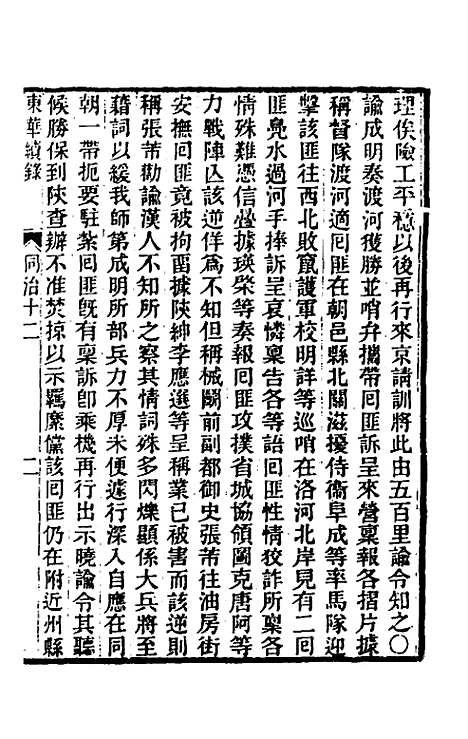 理俟險工平穩以後再行來京請訓將此由五百里諭令知之〇
諭成明奏渡河獲勝並哨弁攜帶回匪訴呈來營稟報各摺片據
稱督隊渡河適回匪在朝邑縣北關滋擾侍衞阜成等率馬隊迎
擊該匪往西北敗竄護軍校明詳等巡哨在洛河北岸見有二回
匪鳧水過河手捧訴呈哀憐稟告各等語回匪性情狡詐所稟各
情殊難憑信疊據瑛棨等奏報回匪攻撲省城協領圖克唐阿等
力戰陣亾該逆佯爲不知但稱械鬭前副都御史張芾往油房街
安撫回匪竟被拘畱據陝紳李應選等呈稱業已被害而該逆則
稱張芾勸諭漢人不知所之察其情詞殊多閃爍顯係大兵將至
藉詞以緩我師第成明所部兵力不厚未便遽行深入自應在同
朝一帶扼要駐紮回匪旣有稟訴卽乘機再行出示曉諭令其聽
候勝保到陝查辦不准焚掠以示羈縻儻該回匪仍在附近州縣
東華續錄 同治十二 二